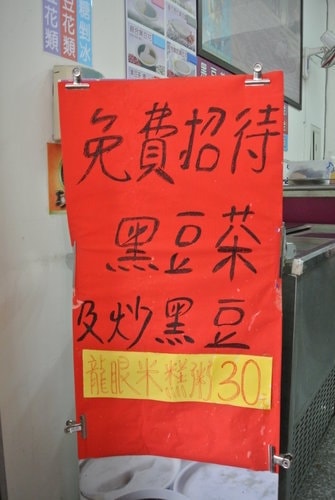 免費招待
黑豆茶
及炒黑豆
龍眼米糕粥30元
豆花類
花類